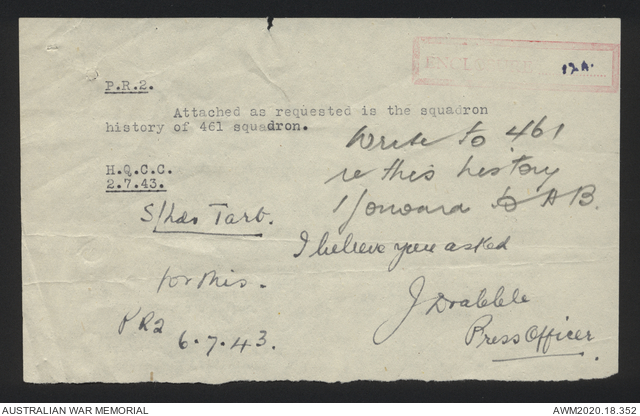 ENCLOSURE 12A.
P.R.2.
Attached as requested is the squadron
history of 461 squadron.
H.Q.C.C.
2.7.43.
Write to 461
re this history
forward to A B.
S/Ldr Tarb.
I believe you asked
for this.
J Drabble
Press Officer.
P R 2
6.7.43.
AUSTRALIAN WAR MEMORIAL
AWM2020.18.352